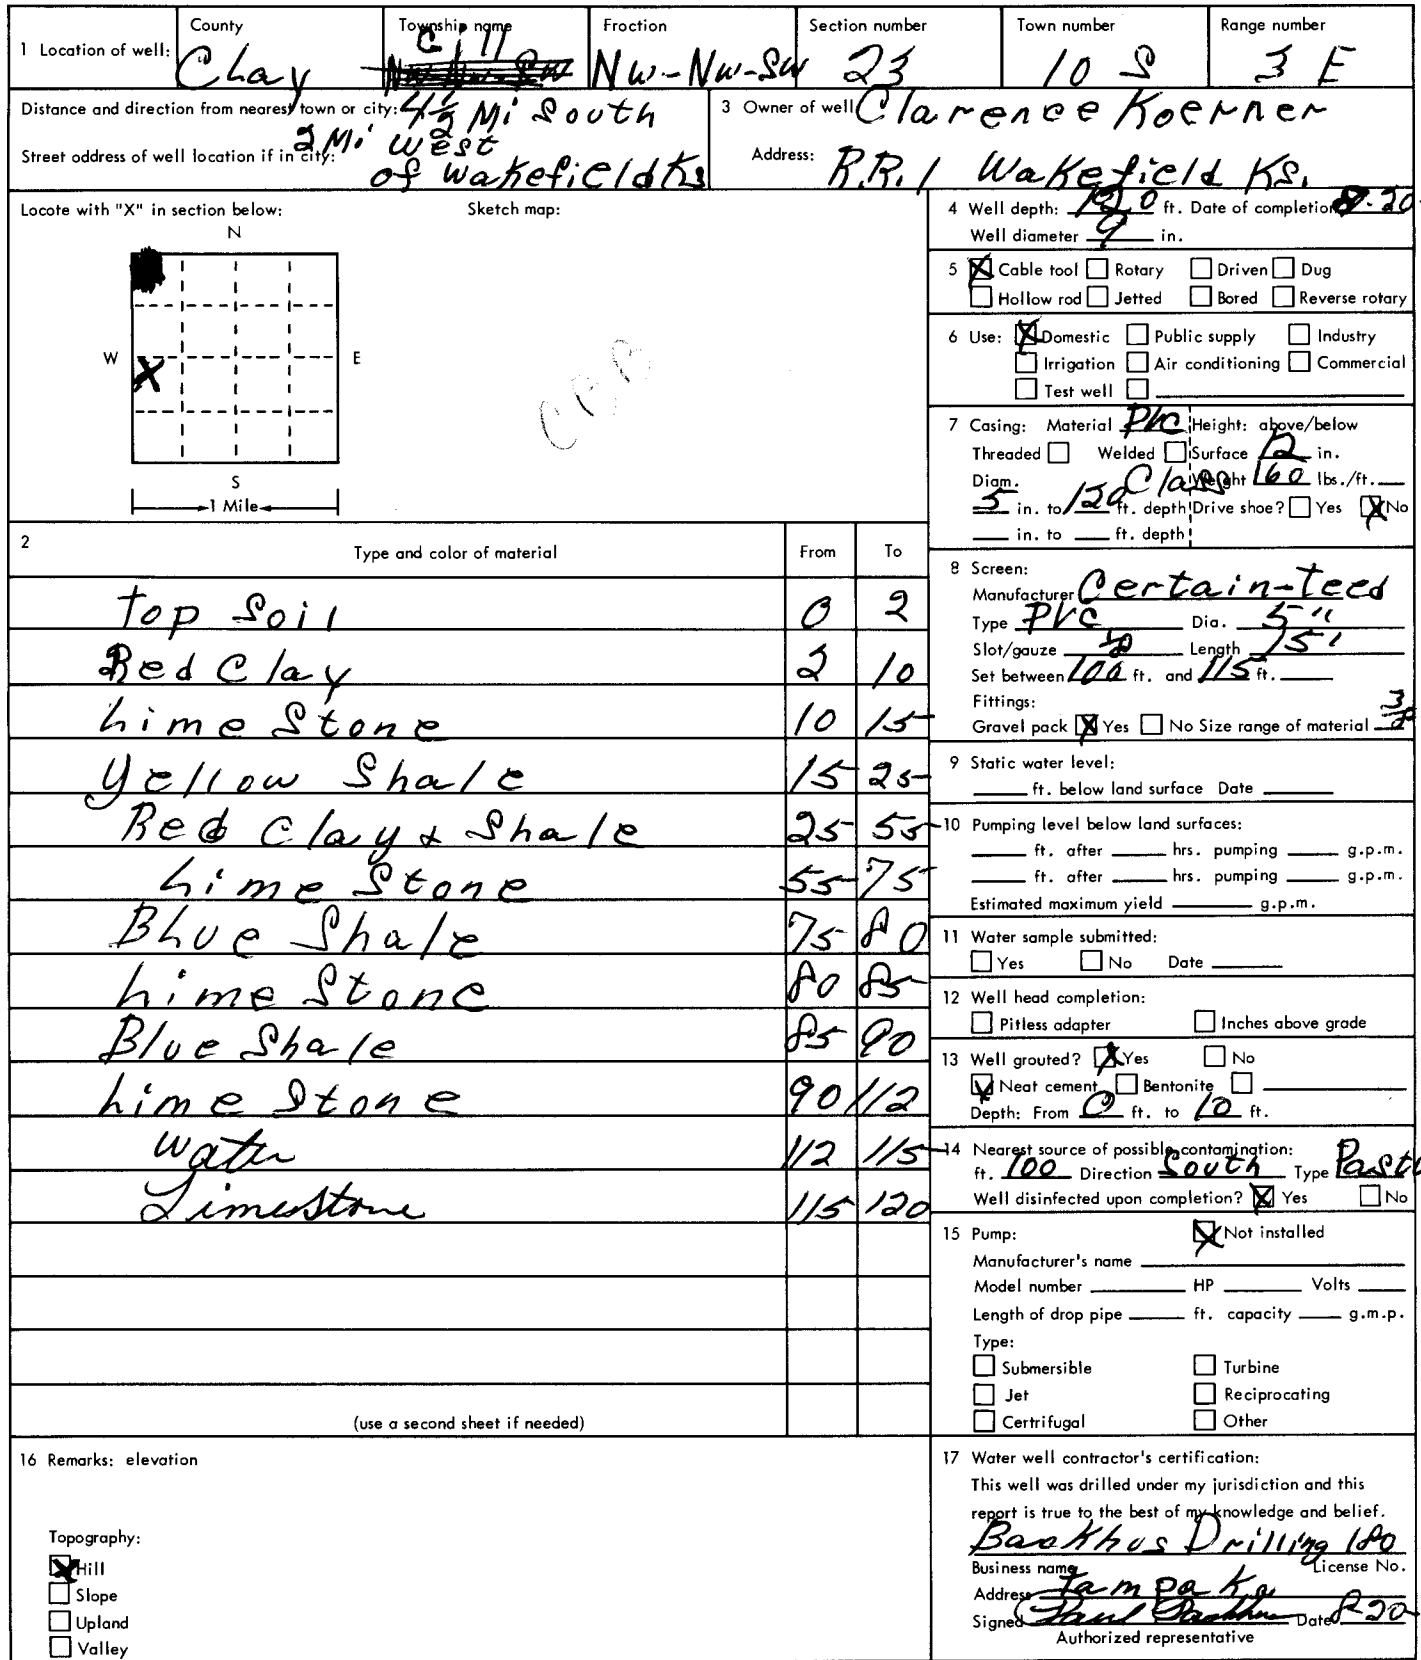 1 Location of well: County Clay Township name Gill Fraction NW-NW-SW Section number 23 Town number 10 S Range number 3 E
Distance and direction from nearest town or city: 4 1/2 Mi South
2 Mi West
Street address of well location if in city: of Wakefield Ks
3 Owner of well Clarence Koerner
Address: R.R. 1 Wakefield KS.
Locate with "X" in section below: Sketch map:
N
W X E
S
1 Mile
2 Type and color of material From To
Top Soil 0 2
Red Clay 2 10
Lime Stone 10 15
Yellow Shale 15 25
Red Clay & Shale 25 55
Lime Stone 55 75
Blue Shale 75 80
Lime Stone 80 85
Blue Shale 85 90
Lime Stone 90 112
Water 112 115
Limestone 115 120
(use a second sheet if needed)
4 Well depth: 120 ft. Date of completion 8-20-
Well diameter 9 in.
5 X Cable tool Rotary Driven Dug
Hollow rod Jetted Bored Reverse rotary
6 Use: X Domestic Public supply Industry
Irrigation Air conditioning Commercial
Test well
7 Casing: Material PVC Height: above/below
Threaded Welded Surface 12 in.
Diam. Class Weight 160 lbs./ft.
5 in. to 120 ft. depth Drive shoe? Yes X No
in. to ft. depth
8 Screen:
Manufacturer Certain-teed
Type PVC Dia. 5"
Slot/gauze 1/8 Length 15'
Set between 100 ft. and 115 ft.
Fittings:
Gravel pack X Yes No Size range of material 3/8
9 Static water level:
ft. below land surface Date
10 Pumping level below land surfaces:
ft. after hrs. pumping g.p.m.
ft. after hrs. pumping g.p.m.
Estimated maximum yield g.p.m.
11 Water sample submitted:
Yes No Date
12 Well head completion:
Pitless adapter Inches above grade
13 Well grouted? X Yes No
X Neat cement Bentonite
Depth: From 0 ft. to 10 ft.
14 Nearest source of possible contamination:
ft. 100 Direction South Type Past
Well disinfected upon completion? X Yes No
15 Pump: X Not installed
Manufacturer's name
Model number HP Volts
Length of drop pipe ft. capacity g.m.p.
Type:
Submersible Turbine
Jet Reciprocating
Certrifugal Other
16 Remarks: elevation
Topography:
X Hill
Slope
Upland
Valley
17 Water well contractor's certification:
This well was drilled under my jurisdiction and this
report is true to the best of my knowledge and belief.
Backhus Drilling 180
Business name License No.
Address Tampa Ks
Signed Paul Backhus Date 8-20-
Authorized representative